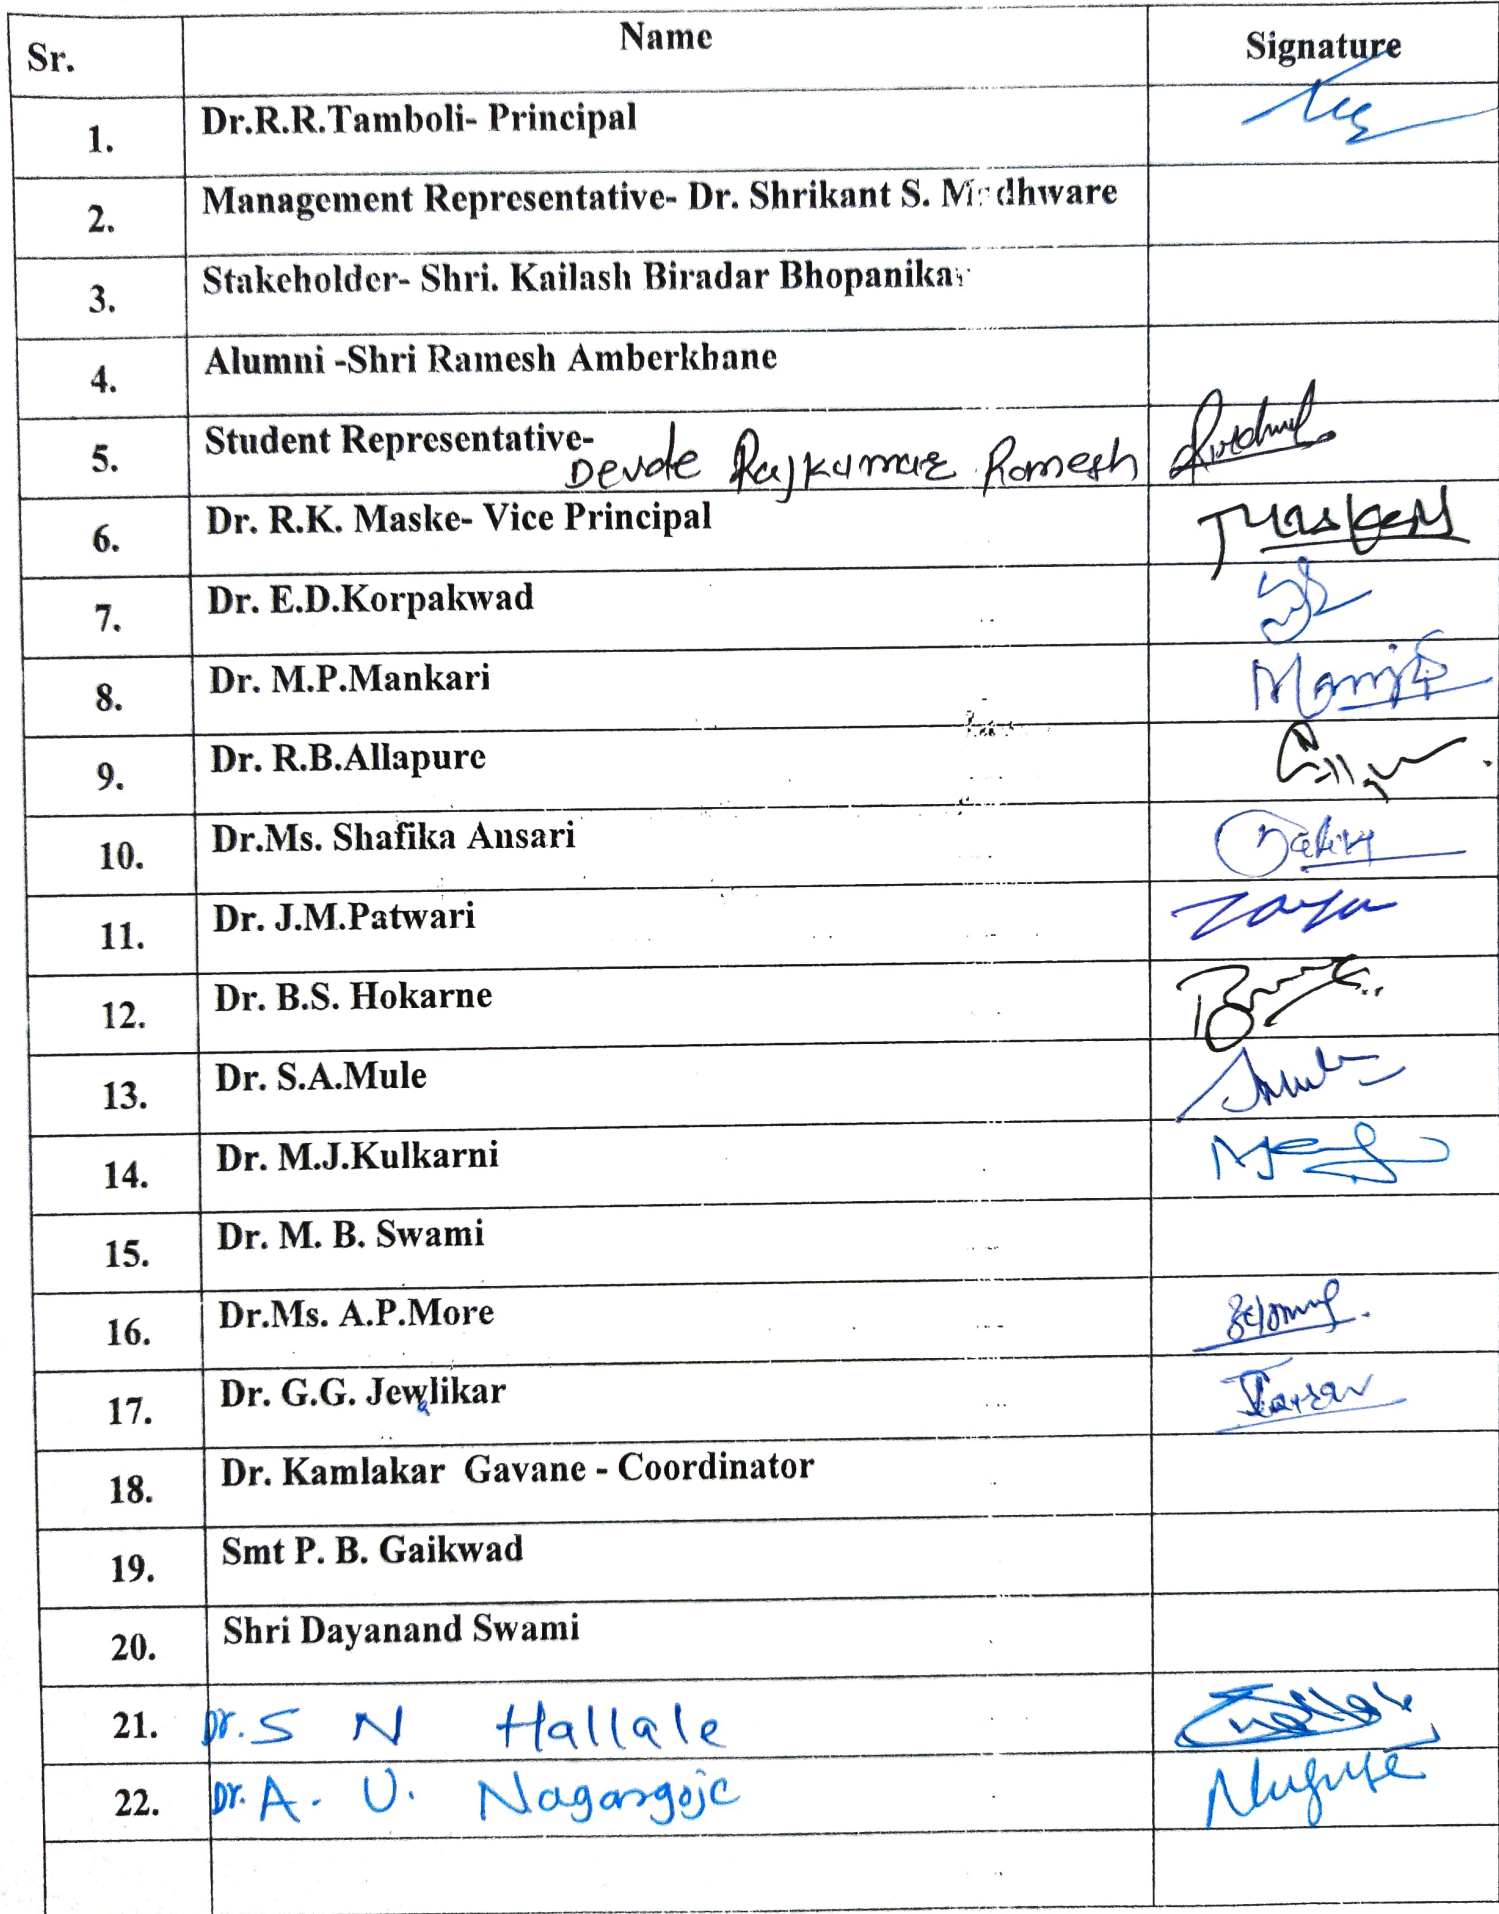 Sr. Name Signature
1. Dr.R.R.Tamboli- Principal
2. Management Representative- Dr. Shrikant S.
3. Stakeholder- Shri. Kailash Biradar Bhopanikar
4. Alumni -Shri Ramesh Amberkhane
5. Student Representative-
Devde Rajkumar Ramesh
6. Dr. R.K. Maske- Vice Principal
7. Dr. E.D.Korpakwad
8. Dr. M.P.Mankari
9. Dr. R.B.Allapure
10. Dr.Ms. Shafika Ansari
11. Dr. J.M.Patwari
12. Dr. B.S. Hokarne
13. Dr. S.A.Mule
14. Dr. M.J.Kulkarni
15. Dr. M. B. Swami
16. Dr.Ms. A.P.More
17. Dr. G.G. Jewlikar
18. Dr. Kamlakar Gavane - Coordinator
19. Smt P. B. Gaikwad
20. Shri Dayanand Swami
21. Dr. S N Hallale
22. Dr. A. U. Nagargoje